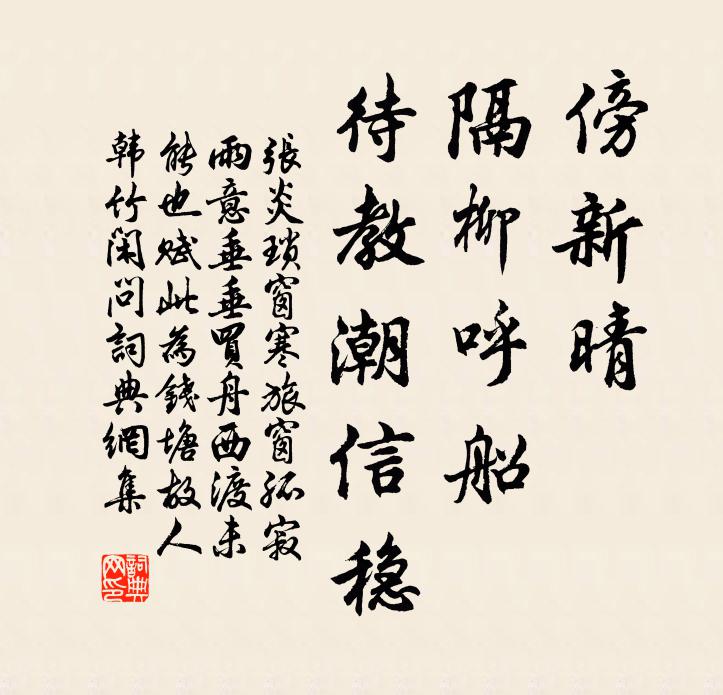 傍新晴
隔柳呼船
待教潮信稳
張炎瑣窗寒旅窗孤寂
雨意垂垂買舟西渡未
能也賦此為錢塘故人
韩竹闲问詞典網集
詞典网印